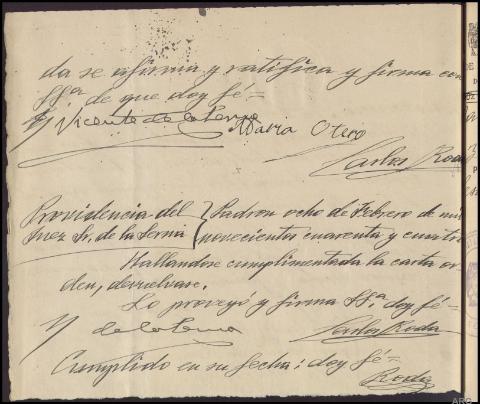 da se afirma y ratifica y firma con
SSª de que doy fé=
Vicente de la Serna Maria Otero
Carlos Roda
Providencia del
Juez Sr. de la Serna
Padron ocho de Febrero de mil
novecientos cuarenta y cuatro
Hallandose cumplimentada la carta or-
den, devuelvase.
Lo proveyó y firma SSª. doy fé=
de la Serna Carlos Roda
Cumplido en su fecha: doy fé=
Roda